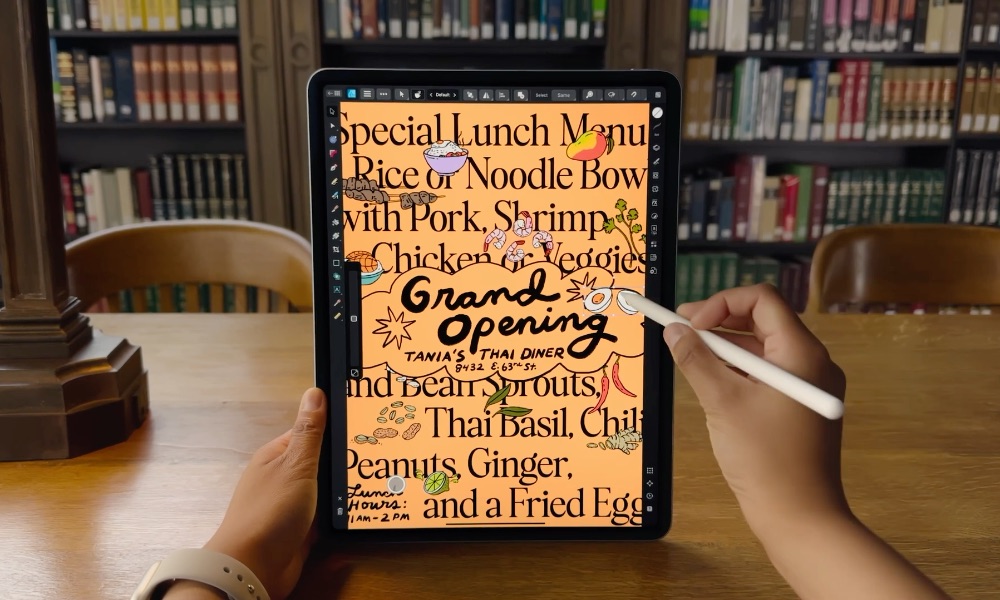 Default
Select
Same
Special Lunch Menu
Rice or Noodle Bow
with Pork, Shrimp,
Chicken or Veggies
Grand
Opening
TANIA'S THAI DINER
8432 E. 63rd St.
and Bean Sprouts,
Thai Basil, Chili
Peanuts, Ginger,
and a Fried Egg
Lunch
Hours:
11AM-2PM